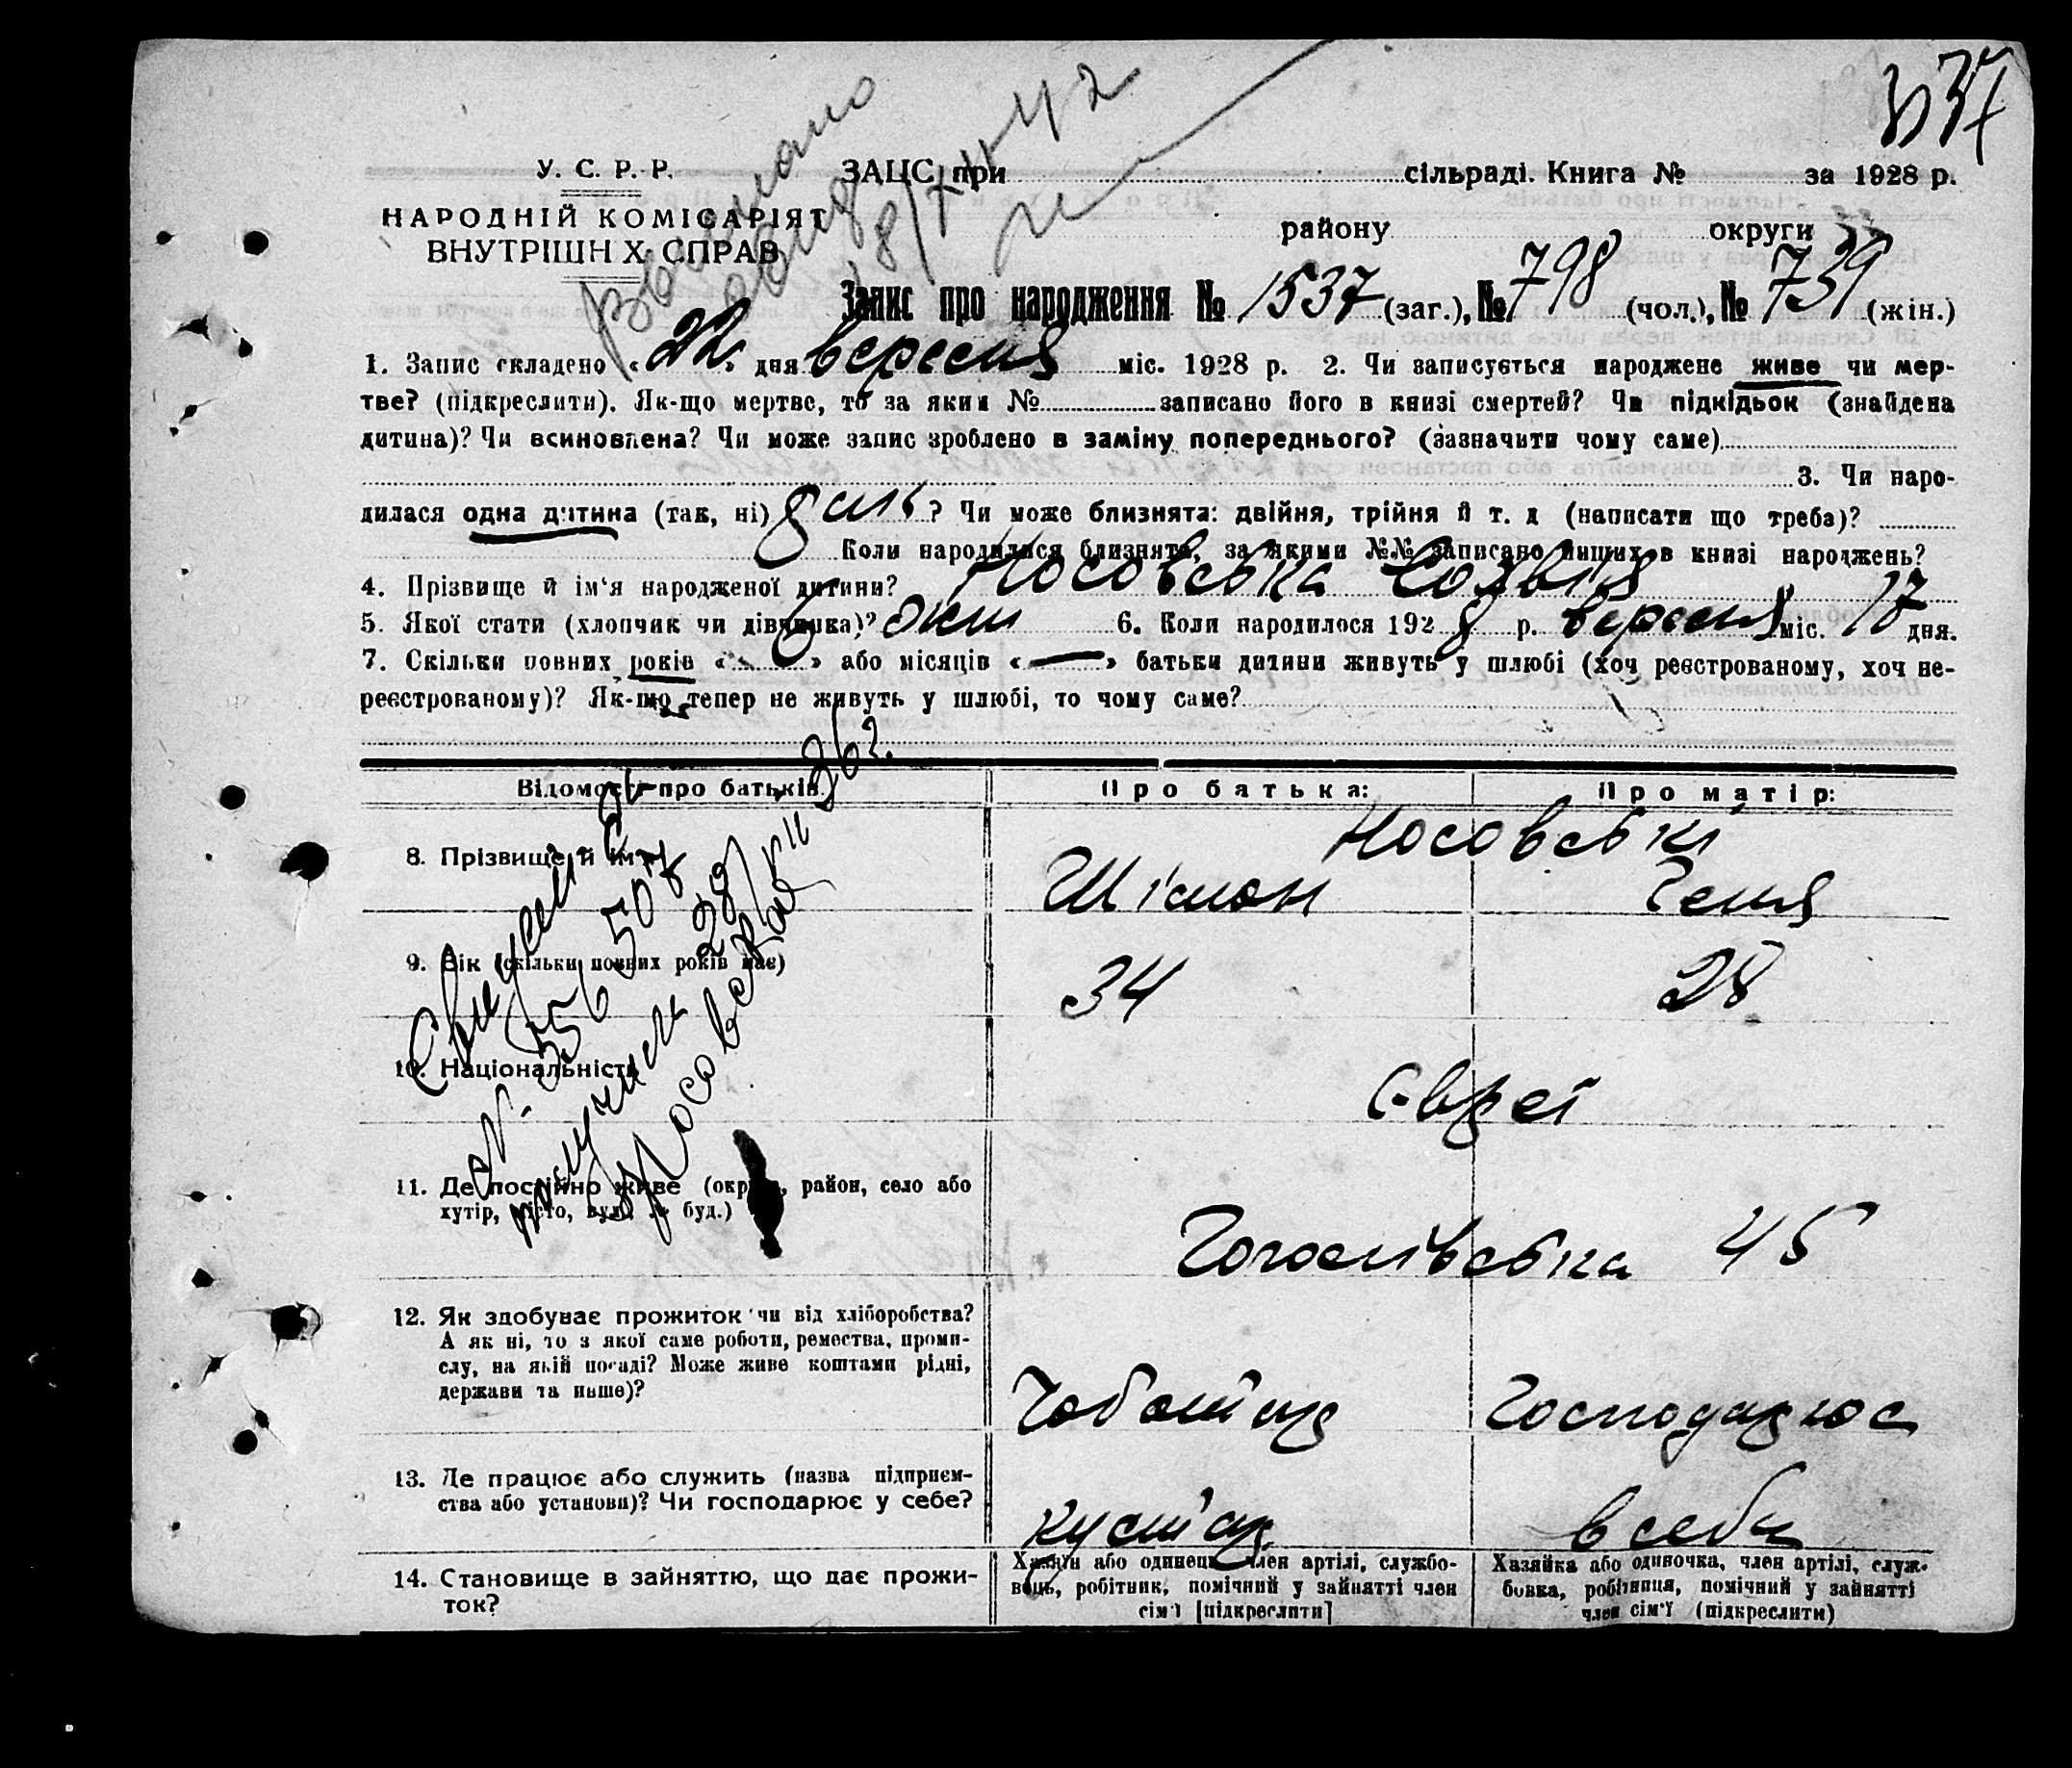 У. С. Р. Р.
НАРОДНІЙ КОМІСАРІЯТ
ВНУТРІШН Х СПРАВ
ЗАЦС при сільраді. Книга № за 1928 р.
району округи
Запис про народження № 1537 (заг.), № 798 (чол.), № 739 (жін.)
1. Запис складено «22» дня вересня міс. 1928 р. 2. Чи записується народжене живе чи мер-
тве? (підкреслити). Як-що мертве, то за яким № записано його в книзі смертей? Чи підкідьок (знайдена
дитина)? Чи всиновлена? Чи може запис зроблено в заміну попереднього? (зазначити чому саме)
3. Чи наро-
дилася одна дитина (так, ні) ? Чи може близнята: двійня, трійня й т. д (написати що треба)?
Коли народилися близнята, за якими №№ записано инших в книзі народжень?
4. Прізвище й ім'я народженої дитини? Носовська
5. Якої стати (хлопчик чи дівчинка)? 6. Коли народилося 1928 р. вересня міс. 17 дня.
7. Скільки повних років « 6 » або місяців « — » батьки дитини живуть у шлюбі (хоч реєстрованому, хоч не-
реєстрованому)? Як-що тепер не живуть у шлюбі, то чому саме?
Відомості про батьків. Про батька: Про матір:
Носовські
8. Прізвище й ім'я Шімон Геня
9. Вік (скільки повних років має) 34 28
10. Національність Євреї
11. Де постійно живе (округа, район, село або
хутір, місто, вул. № буд.) Гоголівська 45
12. Як здобуває прожиток чи від хліборобства?
А як ні, то з якої саме роботи, ремества, проми-
слу, на якій посаді? Може живе коштами рідні,
держави та инше)? Чоботар Господарює
13. Де працює або служить (назва підприєм-
ства або установи)? Чи господарює у себе? кустар в себе
14. Становище в зайняттю, що дає прожи-
ток?
Хазяїн або одинець, член артілі, службо-
вець, робітник, помічний у зайнятті член
сім'ї [підкреслити]
Хазяйка або одиночка, член артілі, служ-
бовка, робітниця, помічний у зайнятті
член сім'ї (підкреслити)